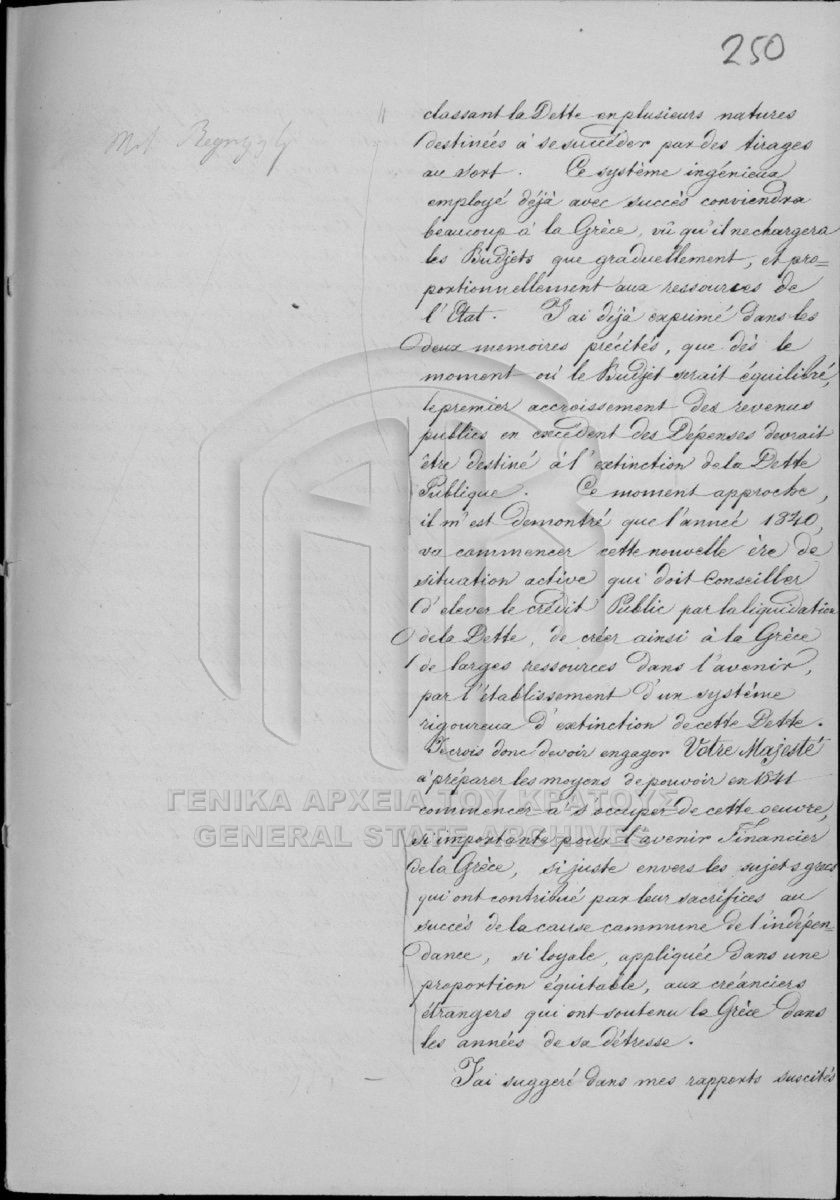 250
classant la Dette en plusieurs natures
destinées à se succéder par des tirages
au sort. Ce système ingénieux
employé déjà avec succès conviendra
beaucoup à la Grèce, vû qu'il ne chargera
les Budjets que graduellement, et pro=
portionnellement aux ressources de
l'Etat. J'ai déjà exprimé dans les
deux memoires précités, que dès le
moment où le Budjet serait équilibré,
le premier accroissement des revenus
publics en excédent des Dépenses devrait
être destiné à l'extinction de la Dette
Publique. Ce moment approche,
il m'est demontré que l'année 1840,
va commencer cette nouvelle ère de
situation active qui doit conseiller
d'elever le crédit Public par la liquidation
de la Dette, de créer ainsi à la Grèce
de larges ressources dans l'avenir,
par l'établissement d'un système
rigoureux d'extinction de cette Dette.
Je crois donc devoir engager Votre Majesté
à préparer les moyens de pouvoir en 1841
commencer à s'occuper de cette oeuvre,
si importante pour l'avenir Financier
de la Grèce, si juste envers les sujets grecs
qui ont contribué par leur sacrifices au
succès de la cause commune de l'indépen=
dance, si loyale, appliquée dans une
proportion équitable, aux créanciers
étrangers qui ont soutenu la Grèce dans
les années de sa détresse.
J'ai suggéré dans mes rapports suscités
ΓΕΝΙΚΑ ΑΡΧΕΙΑ ΤΟΥ ΚΡΑΤΟΥΣ
GENERAL STATE ARCHIVES